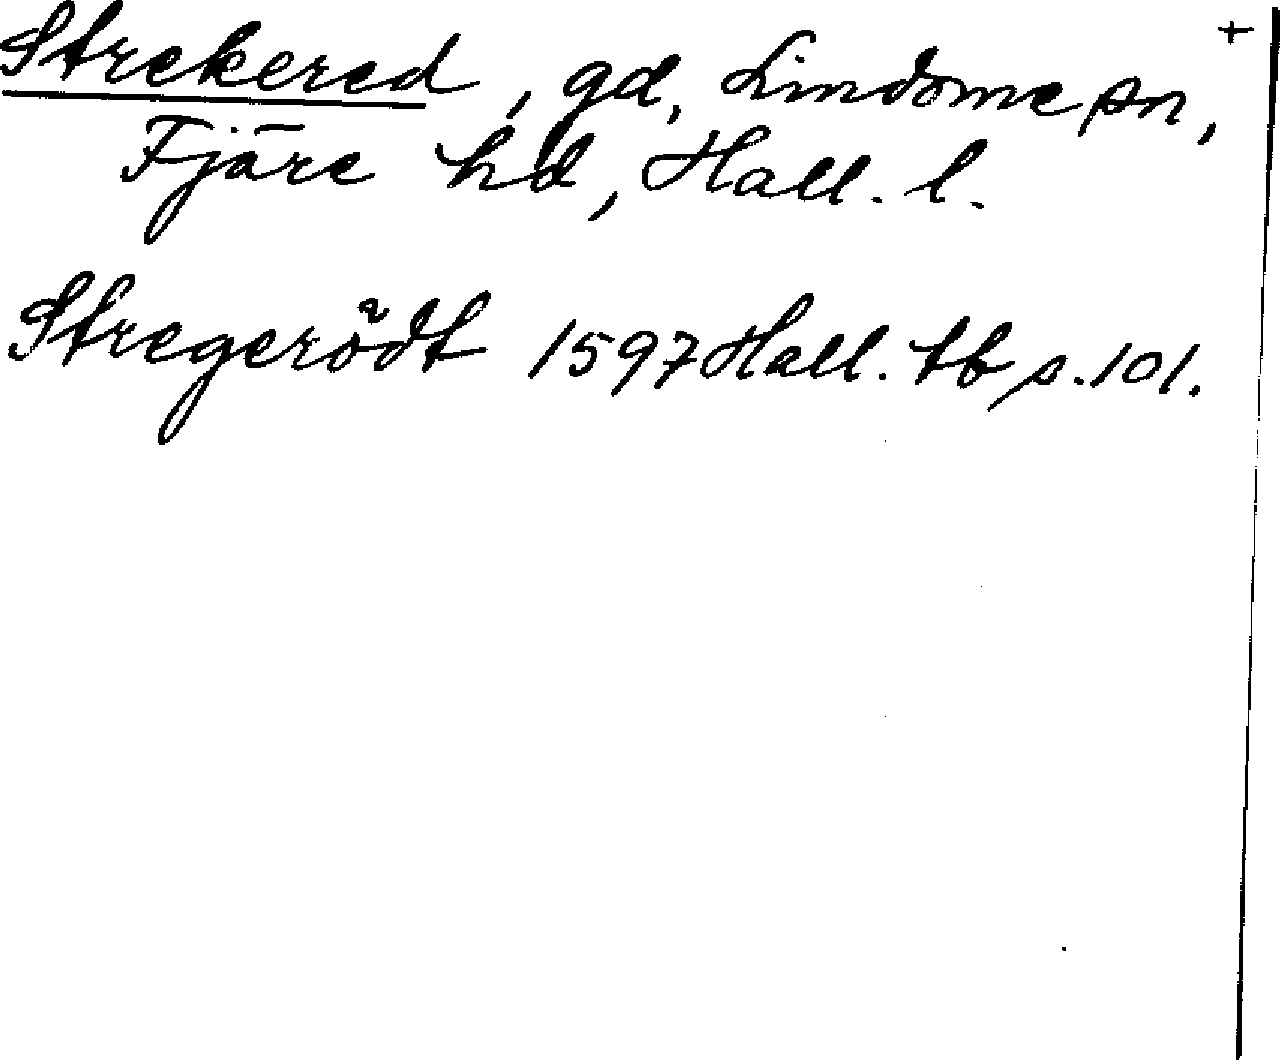 Strekered, gd, Lindome sn, +
Fjäre hd, Hall. l.
Stregerödt 1597 Hall. tb s. 101.